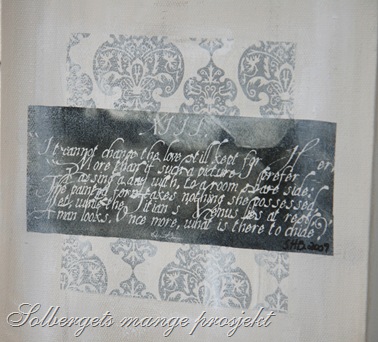 "I cannot change the love still kept for Her
More than if such a picture I prefer
Passing a day with, to a room's bare side:
The painted form takes nothing she possessed,
Yet, while the Titian's Venus lies at rest,
man looks. Once more, what is there to chide?"
SHD. 2009
Solbergets mange prosjekt